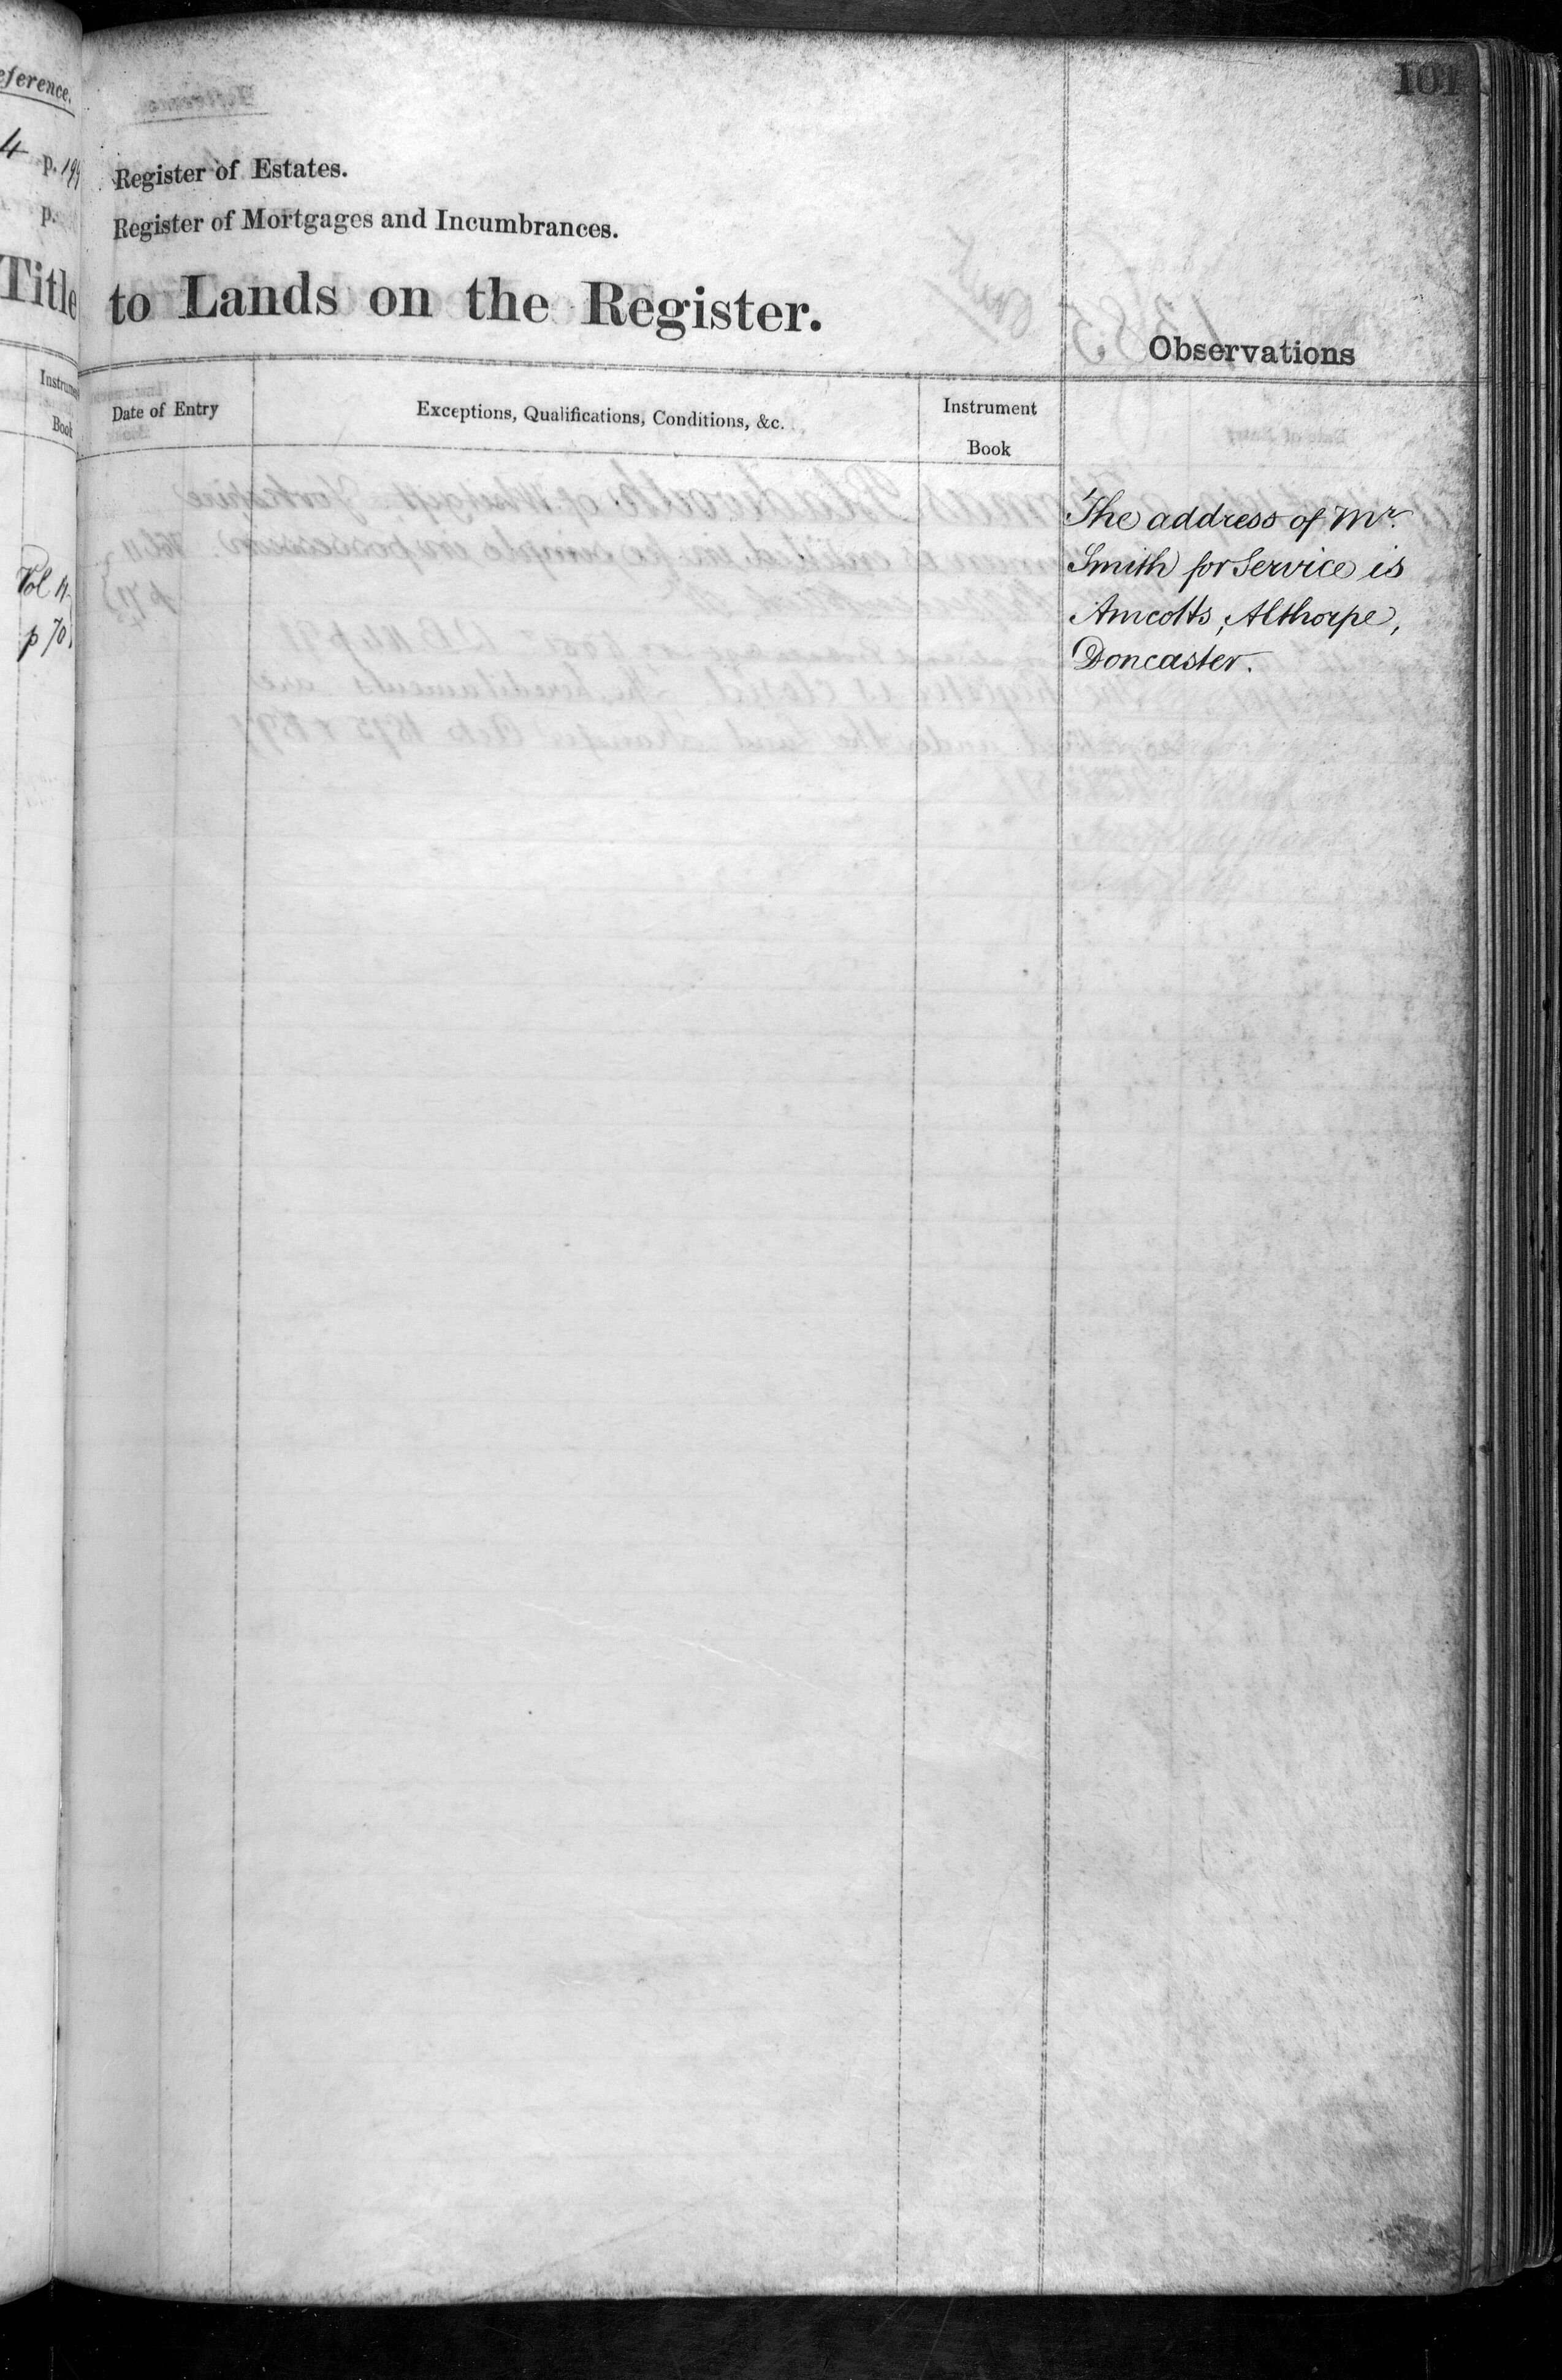 101
Register of Estates.
Register of Mortgages and Incumbrances.
Title to Lands on the Register.
Observations
Date of Entry
Exceptions, Qualifications, Conditions, &c.
Instrument
Book
The address of Mr.
Smith for Service is
Amcotts, Althorpe,
Doncaster.
eference.
4 p. 199
p.
Instrume
Book
Vol 4
p 70